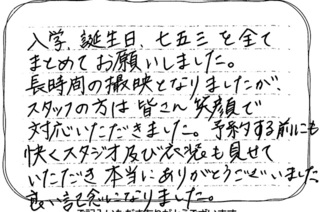 入学、誕生日、七五三を全て
まとめてお願いしました。
長時間の撮映となりましたが、
スタッフの方は皆さん笑顔で
対応いただきました。予約する前にも
快くスタジオ及び衣装も見せて
いただき本当にありがとうございました
良い記念になりました。